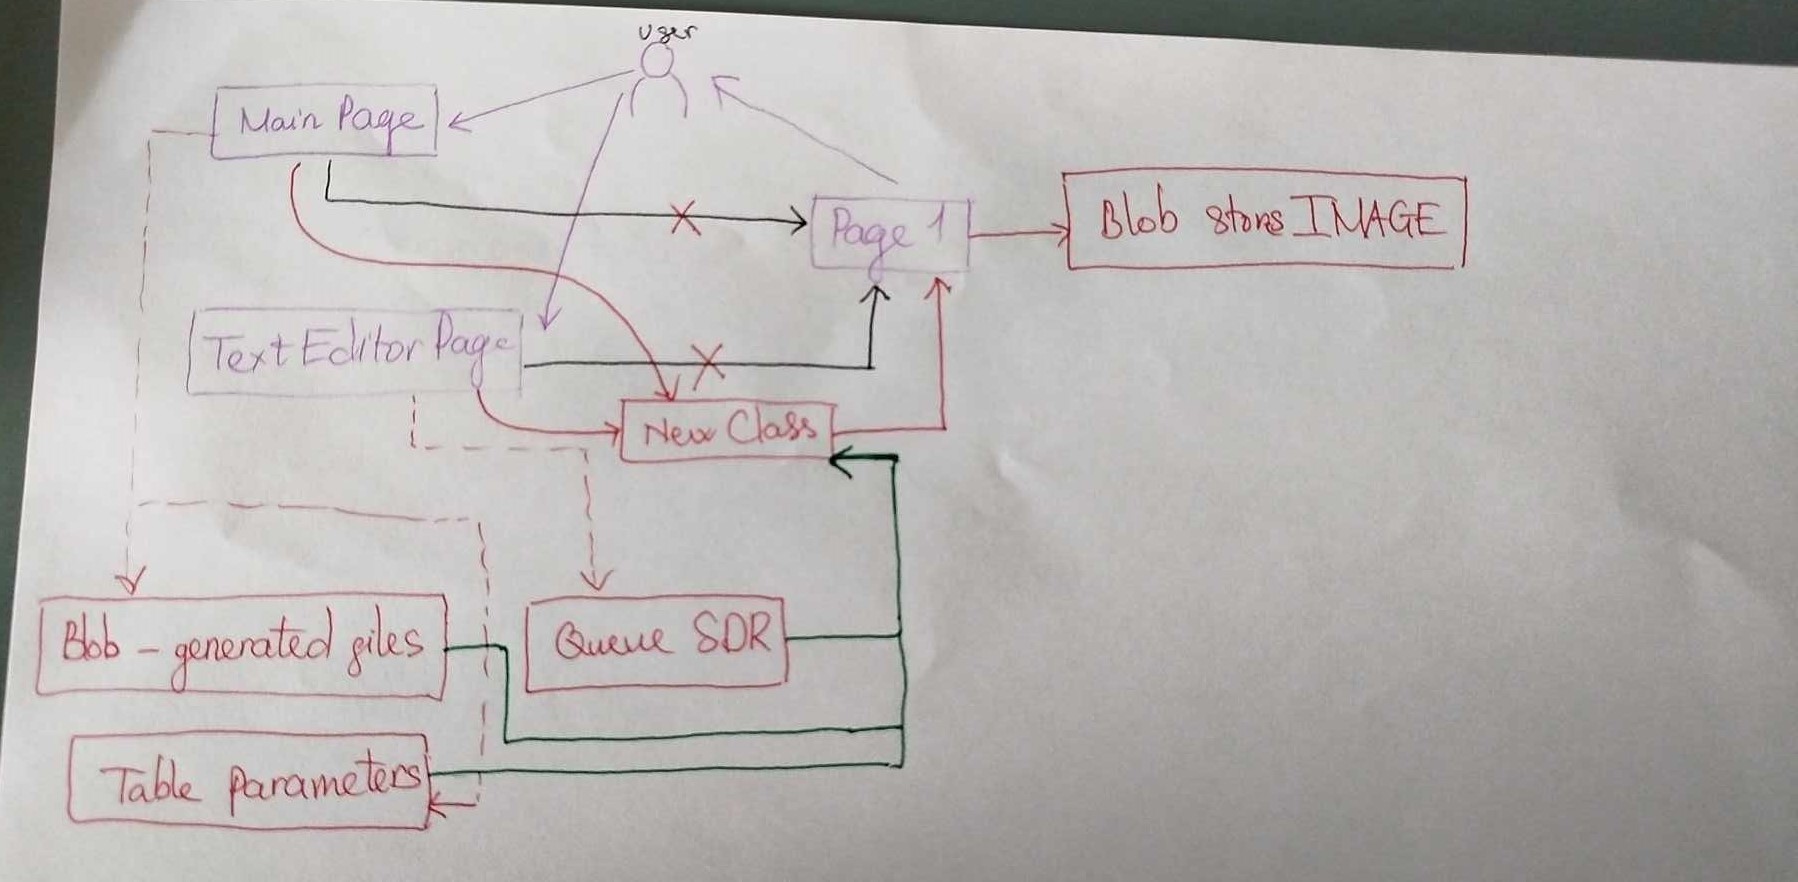 user
Main Page
Page 1
Blob stores IMAGE
Text Editor Page
New Class
Blob - generated files
Queue SDR
Table parameters